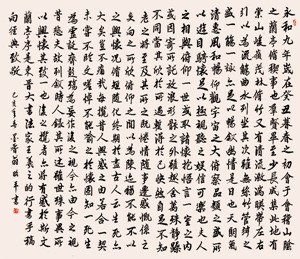 永和九年歲在癸丑暮春之初會于會稽山陰
之蘭亭脩稧事也群賢畢至少長咸集此地有
崇山峻領茂林脩竹又有清流激湍暎帶左右
引以為流觴曲水列坐其次雖無絲竹管弦之
盛一觴一詠亦足以暢敘幽情是日也天朗氣
清惠風和暢仰觀宇宙之大俯察品類之盛所
以遊目騁懷足以極視聽之娛信可樂也夫人
之相與俯仰一世或取諸懷抱悟言一室之內
或因寄所託放浪形骸之外雖趣舍萬殊靜躁
不同當其欣於所遇暫得於己快然自足不知
老之將至及其所之既惓情隨事遷感慨係之
矣向之所欣俛仰之間以為陳迹猶不能不以
之興懷況脩短隨化終期於盡古人云死生亦
大矣豈不痛哉每攬昔人興感之由若合一契
未嘗不臨文嗟悼不能喻之於懷固知一死生
為虛誕齊彭殤為妄作後之視今亦由今之視
昔悲夫故列敘時人錄其所述雖世殊事異所
以興懷其致一也後之攬者亦將有感於斯文
蘭亭序是東晉大書法家王羲之的行書手稿
向經典致敬
書